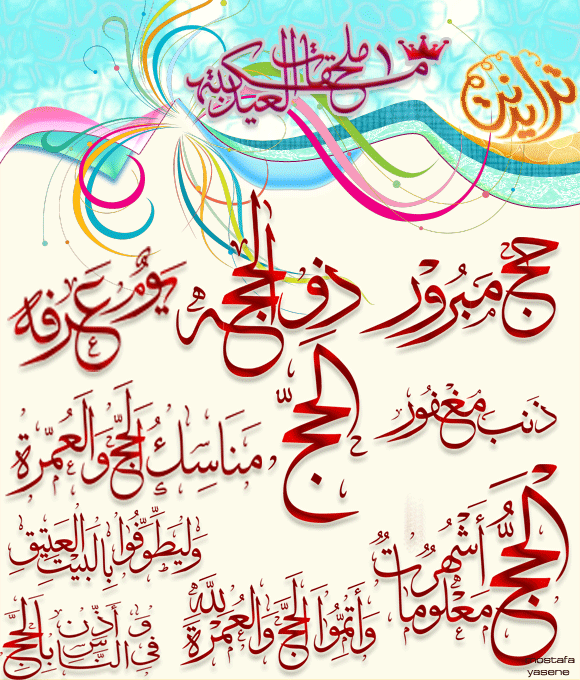 ملحقات العيدكبته
ترايدنت
حج مبرور
ذو الحجه
يوم عرفه
ذنب مغفور
الحج
مناسك الحج والعمرة
الحج أشهر معلومات
وليطوفوا بالبيت العتيق
وأتموا الحج والعمرة لله
وأذن في الناس بالحج
mostafa
yasene